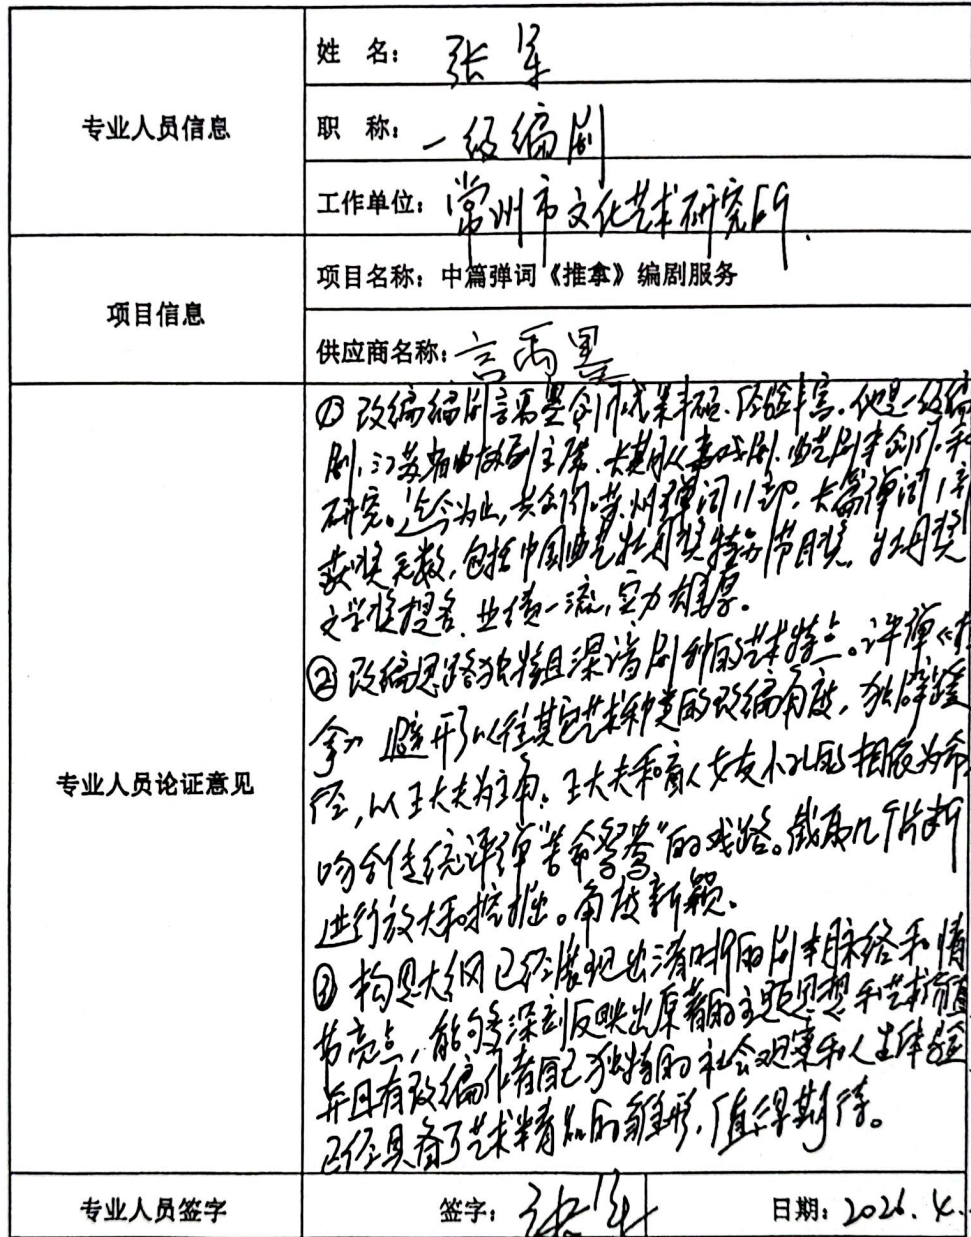 专业人员信息
姓 名：张军
职 称：一级编剧
工作单位：常州市文化艺术研究所.
项目信息
项目名称：中篇弹词《推拿》编剧服务
供应商名称：言禹墨
专业人员论证意见
①改编编剧言禹墨创作成果丰硕、经验丰富。他是一级编
剧，江苏省曲协副主席，长期从事戏剧、曲艺剧本创作和
研究。迄今为止，共创作苏州弹词11部，长篇弹词1部
获奖无数，包括中国曲艺牡丹奖特别节目奖，牡丹奖
文学奖提名，业绩一流，实力雄厚。
②改编思路独特且深谙剧种的艺术特点。评弹《推
拿》避开了以往其它艺术种类的改编角度，独辟蹊
径，以王大夫为主角，王大夫和盲人女友小孔的相依为命
吻合传统评弹“苦命鸳鸯”的戏路。截取几个片断
进行放大和挖掘。角度新颖。
③构思大纲已经展现出清晰的剧本脉络和情
节亮点，能够深刻反映出原著的主题思想和艺术价值
并且有改编作者自己独特的社会观察和人生体验
已经具备了艺术精品的雏形，值得期待。
专业人员签字
签字：张军
日期：2026.4.